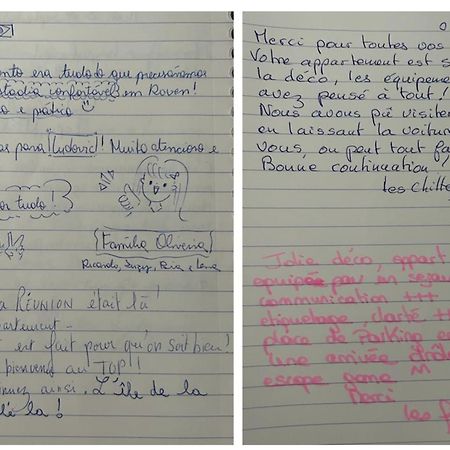 ento era tudo do que precisáramos
estadia confortável em Rouen!
o e prático
as para Ludovic! Muito atencioso e
or tudo!
Família Oliveira
Ricardo,
a RÉUNION était là!
partement -
est fait pour qu'on soit bien!
bienvenu au TOP!!
nuez ainsi. L'île de la
là!
Merci pour toutes vos
Votre appartement est s
la déco, les équipeme
avez pensé à tout!
Nous avons pû visiter
en laissant la voitur
vous, on peut tout fa
Bonne continuation!
les Chilt
Jolie déco, appart
équipée pour un séjour
communication +++
étiquetage clarté ++
place de Parking e
une arrivée drôle
escape game
Merci
les f